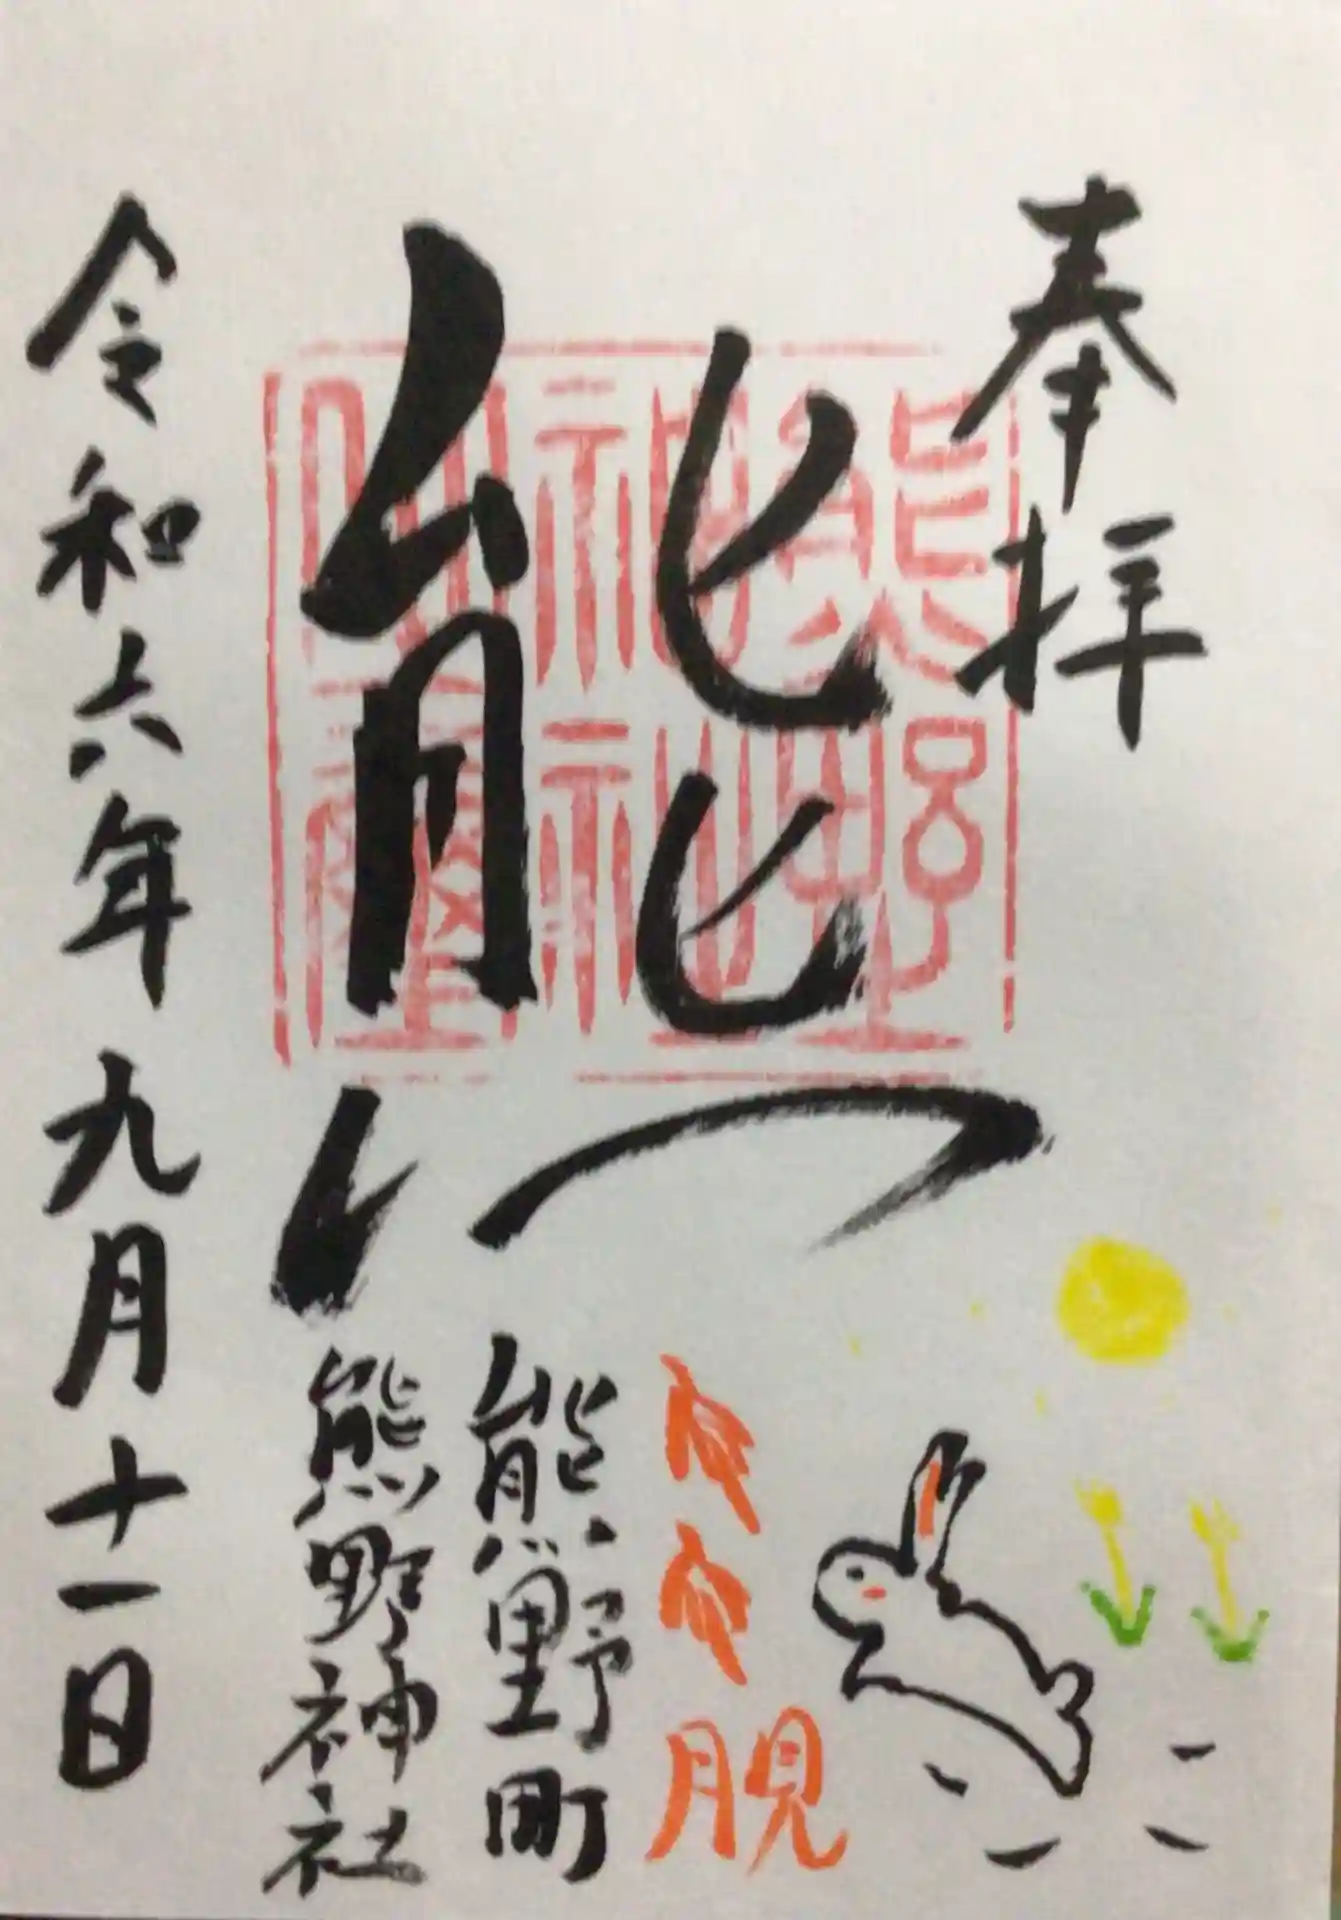 奉拝
熊
熊野
神社
月見
熊野町
熊野神社
令和六年九月十一日